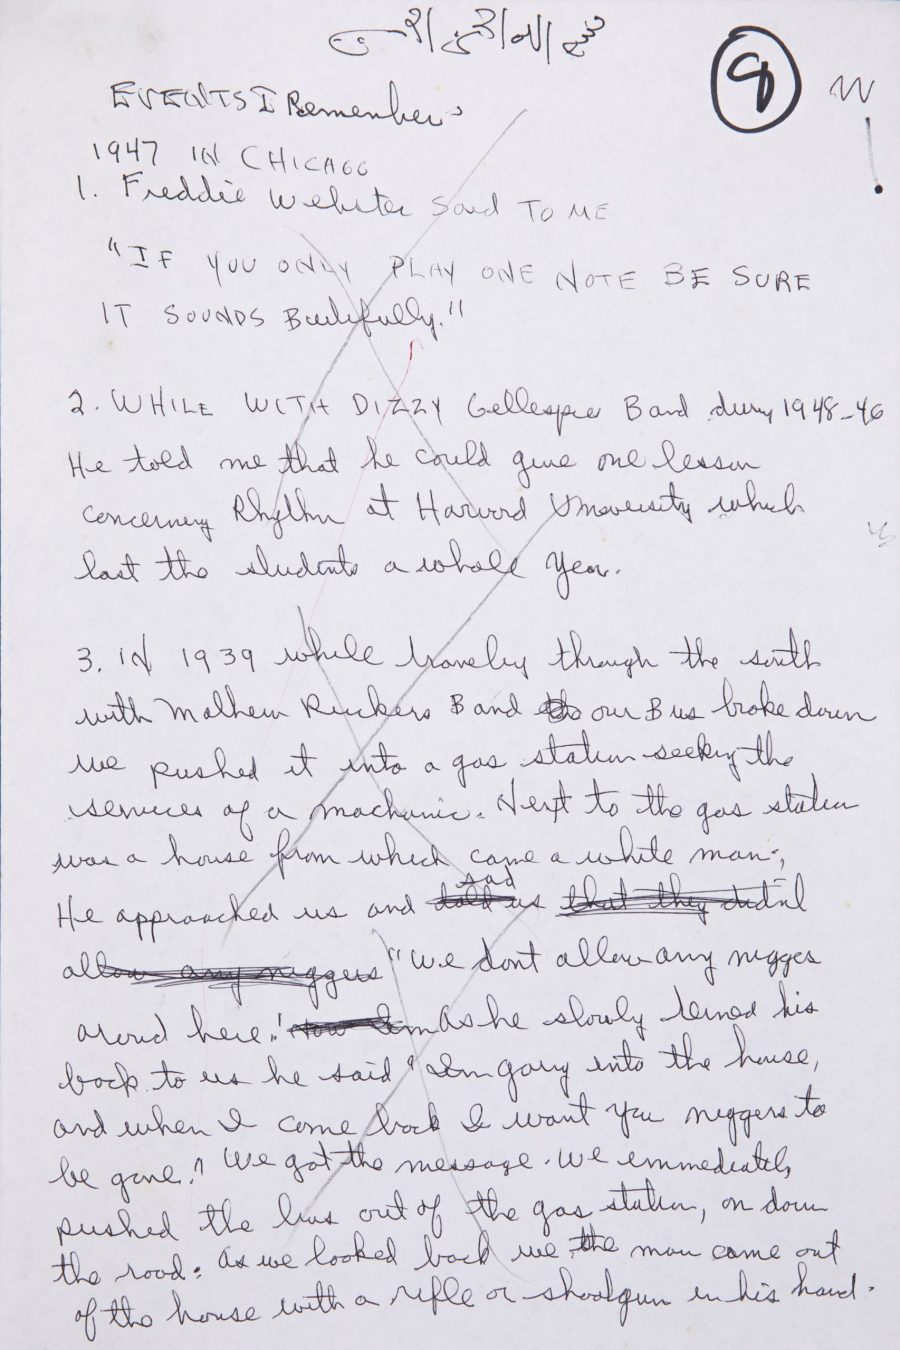 8
EVENTS I Remember
1947 IN CHICAGO
1. Freddie Webster Said TO ME
"IF YOU ONLY PLAY ONE NOTE BE SURE
IT SOUNDS Beutifully."
2. WHILE WITH DIZZY Gellespie Band durny 1948-46
He told me that he could give one lesson
concerning Rhythm at Harvard University which
last the students a whole year.
3. IN 1939 while traveling through the south
with Malhern Ruckers Band our Bus broke down
we pushed it into a gas station seeking the
services of a machanic. Next to the gas station
was a house from which came a white man,
He approached us and said
told us that they didnt
allow any niggers "We dont allow any nigges
around here." As he slowly terned his
back to us he said "Im going into the house,
and when I come back I want you niggers to
be gone." We got the message. We emmediately
pushed the bus out of the gas station, on down
the road. As we looked back we the man come out
of the house with a rifle or shootgun in his hand.